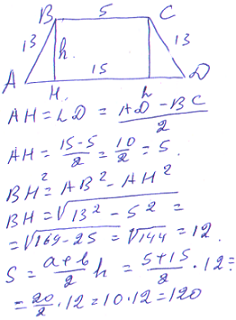 B 5 C
13 h 13
15
A H L D
AH = LD = (AD - BC)/2
AH = (15-5)/2 = 10/2 = 5.
BH² = AB² - AH²
BH = √(13² - 5²) =
= √(169-25) = √144 = 12.
S = (a+b)/2 h = (5+15)/2 · 12 =
= 20/2 · 12 = 10 · 12 = 120